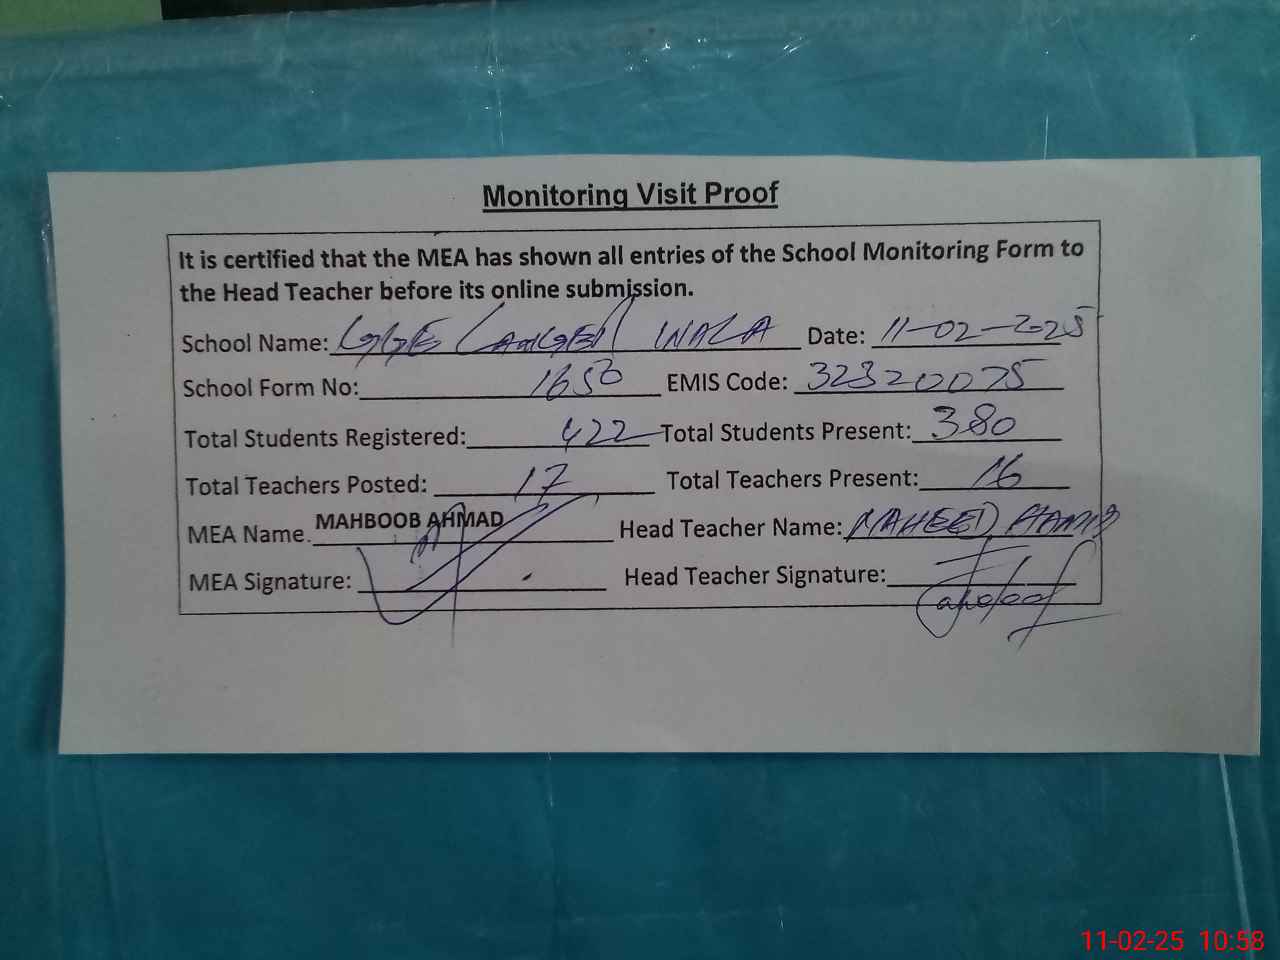 Monitoring Visit Proof
It is certified that the MEA has shown all entries of the School Monitoring Form to
the Head Teacher before its online submission.
School Name: WALA Date: 11-02-2025
School Form No: 1650 EMIS Code: 32320075
Total Students Registered: 422 Total Students Present: 380
Total Teachers Posted: 17 Total Teachers Present: 16
MEA Name. MAHBOOB AHMAD Head Teacher Name: NAHEED
MEA Signature: Head Teacher Signature:
11-02-25 10:58